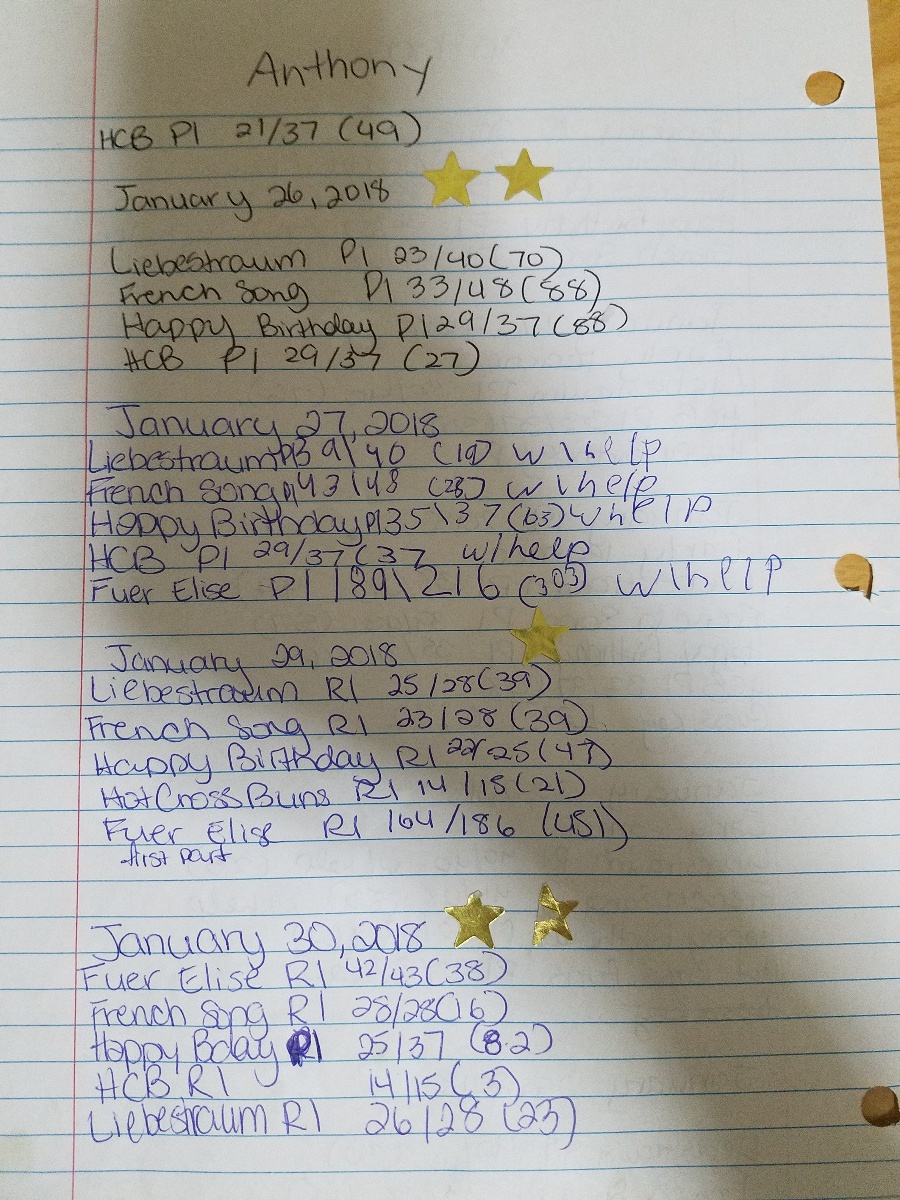 Anthony
HCB P1 21/37 (49)
January 26, 2018
Liebestraum P1 23/40(70)
French Song P1 33/48(88)
Happy Birthday P1 29/37(88)
HCB P1 29/37 (27)
January 27, 2018
Liebestraum 9\40 w\help
French Song P1 43\48 (28) w\help
Happy Birthday P1 35\37(63) whelp
HCB P1 29/37(37 w/help
Fuer Elise P1 189\216 (303) w\help
January 29, 2018
Liebestraum R1 25/28(39)
French Song R1 23/28(39)
Happy Birthday R1 22/25(47)
Hot Cross Buns R1 14/15(21)
Fuer Elise R1 164/186 (451)
first part
January 30, 2018
Fuer Elise R1 42/43(38)
French Song R1 28/28(16)
Happy Bday R1 25/37 (8.2)
HCB R1 14/15(.3)
Liebestraum R1 26/28(23)